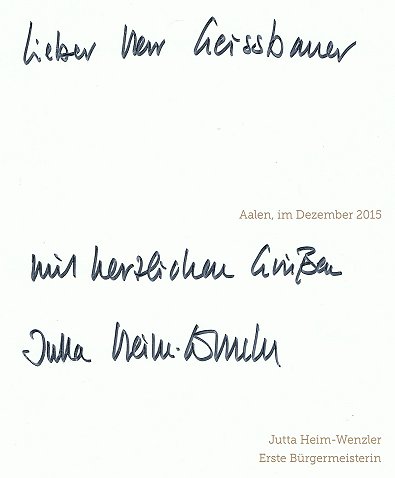 Lieber Herr Geissbauer
Aalen, im Dezember 2015
mit herzlichen Grüßen
Jutta Heim-Wenzler
Jutta Heim-Wenzler
Erste Bürgermeisterin